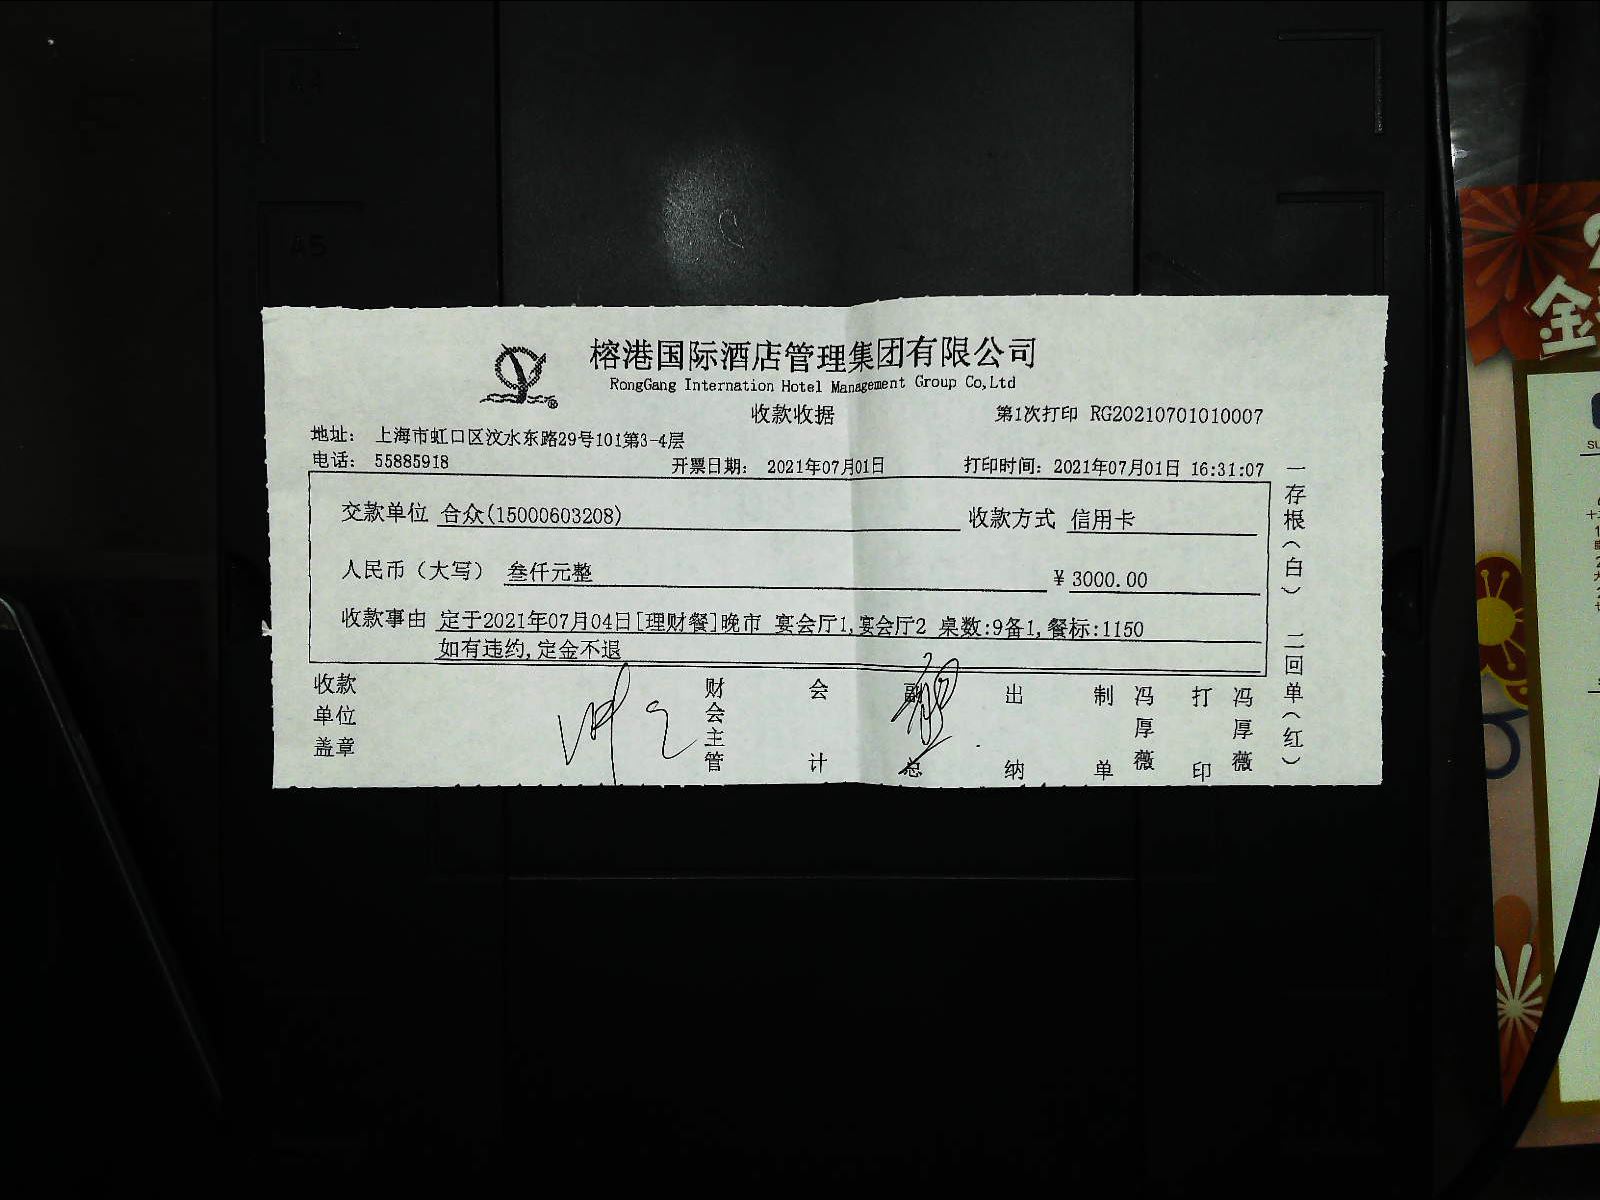 榕港国际酒店管理集团有限公司
RongGang Internation Hotel Management Group Co,Ltd
收款收据
第1次打印 RG20210701010007
地址： 上海市虹口区汶水东路29号101第3-4层
电话： 55885918
开票日期： 2021年07月01日
打印时间：2021年07月01日 16:31:07
交款单位 合众(15000603208)
收款方式 信用卡
人民币（大写） 叁仟元整
￥3000.00
收款事由 定于2021年07月04日[理财餐]晚市 宴会厅1,宴会厅2 桌数:9备1,餐标:1150
如有违约,定金不退
收款单位盖章
财会主管
会计
副总
出纳
制单 冯厚薇
打印 冯厚薇
一存根（白） 二回单（红）
A5
金